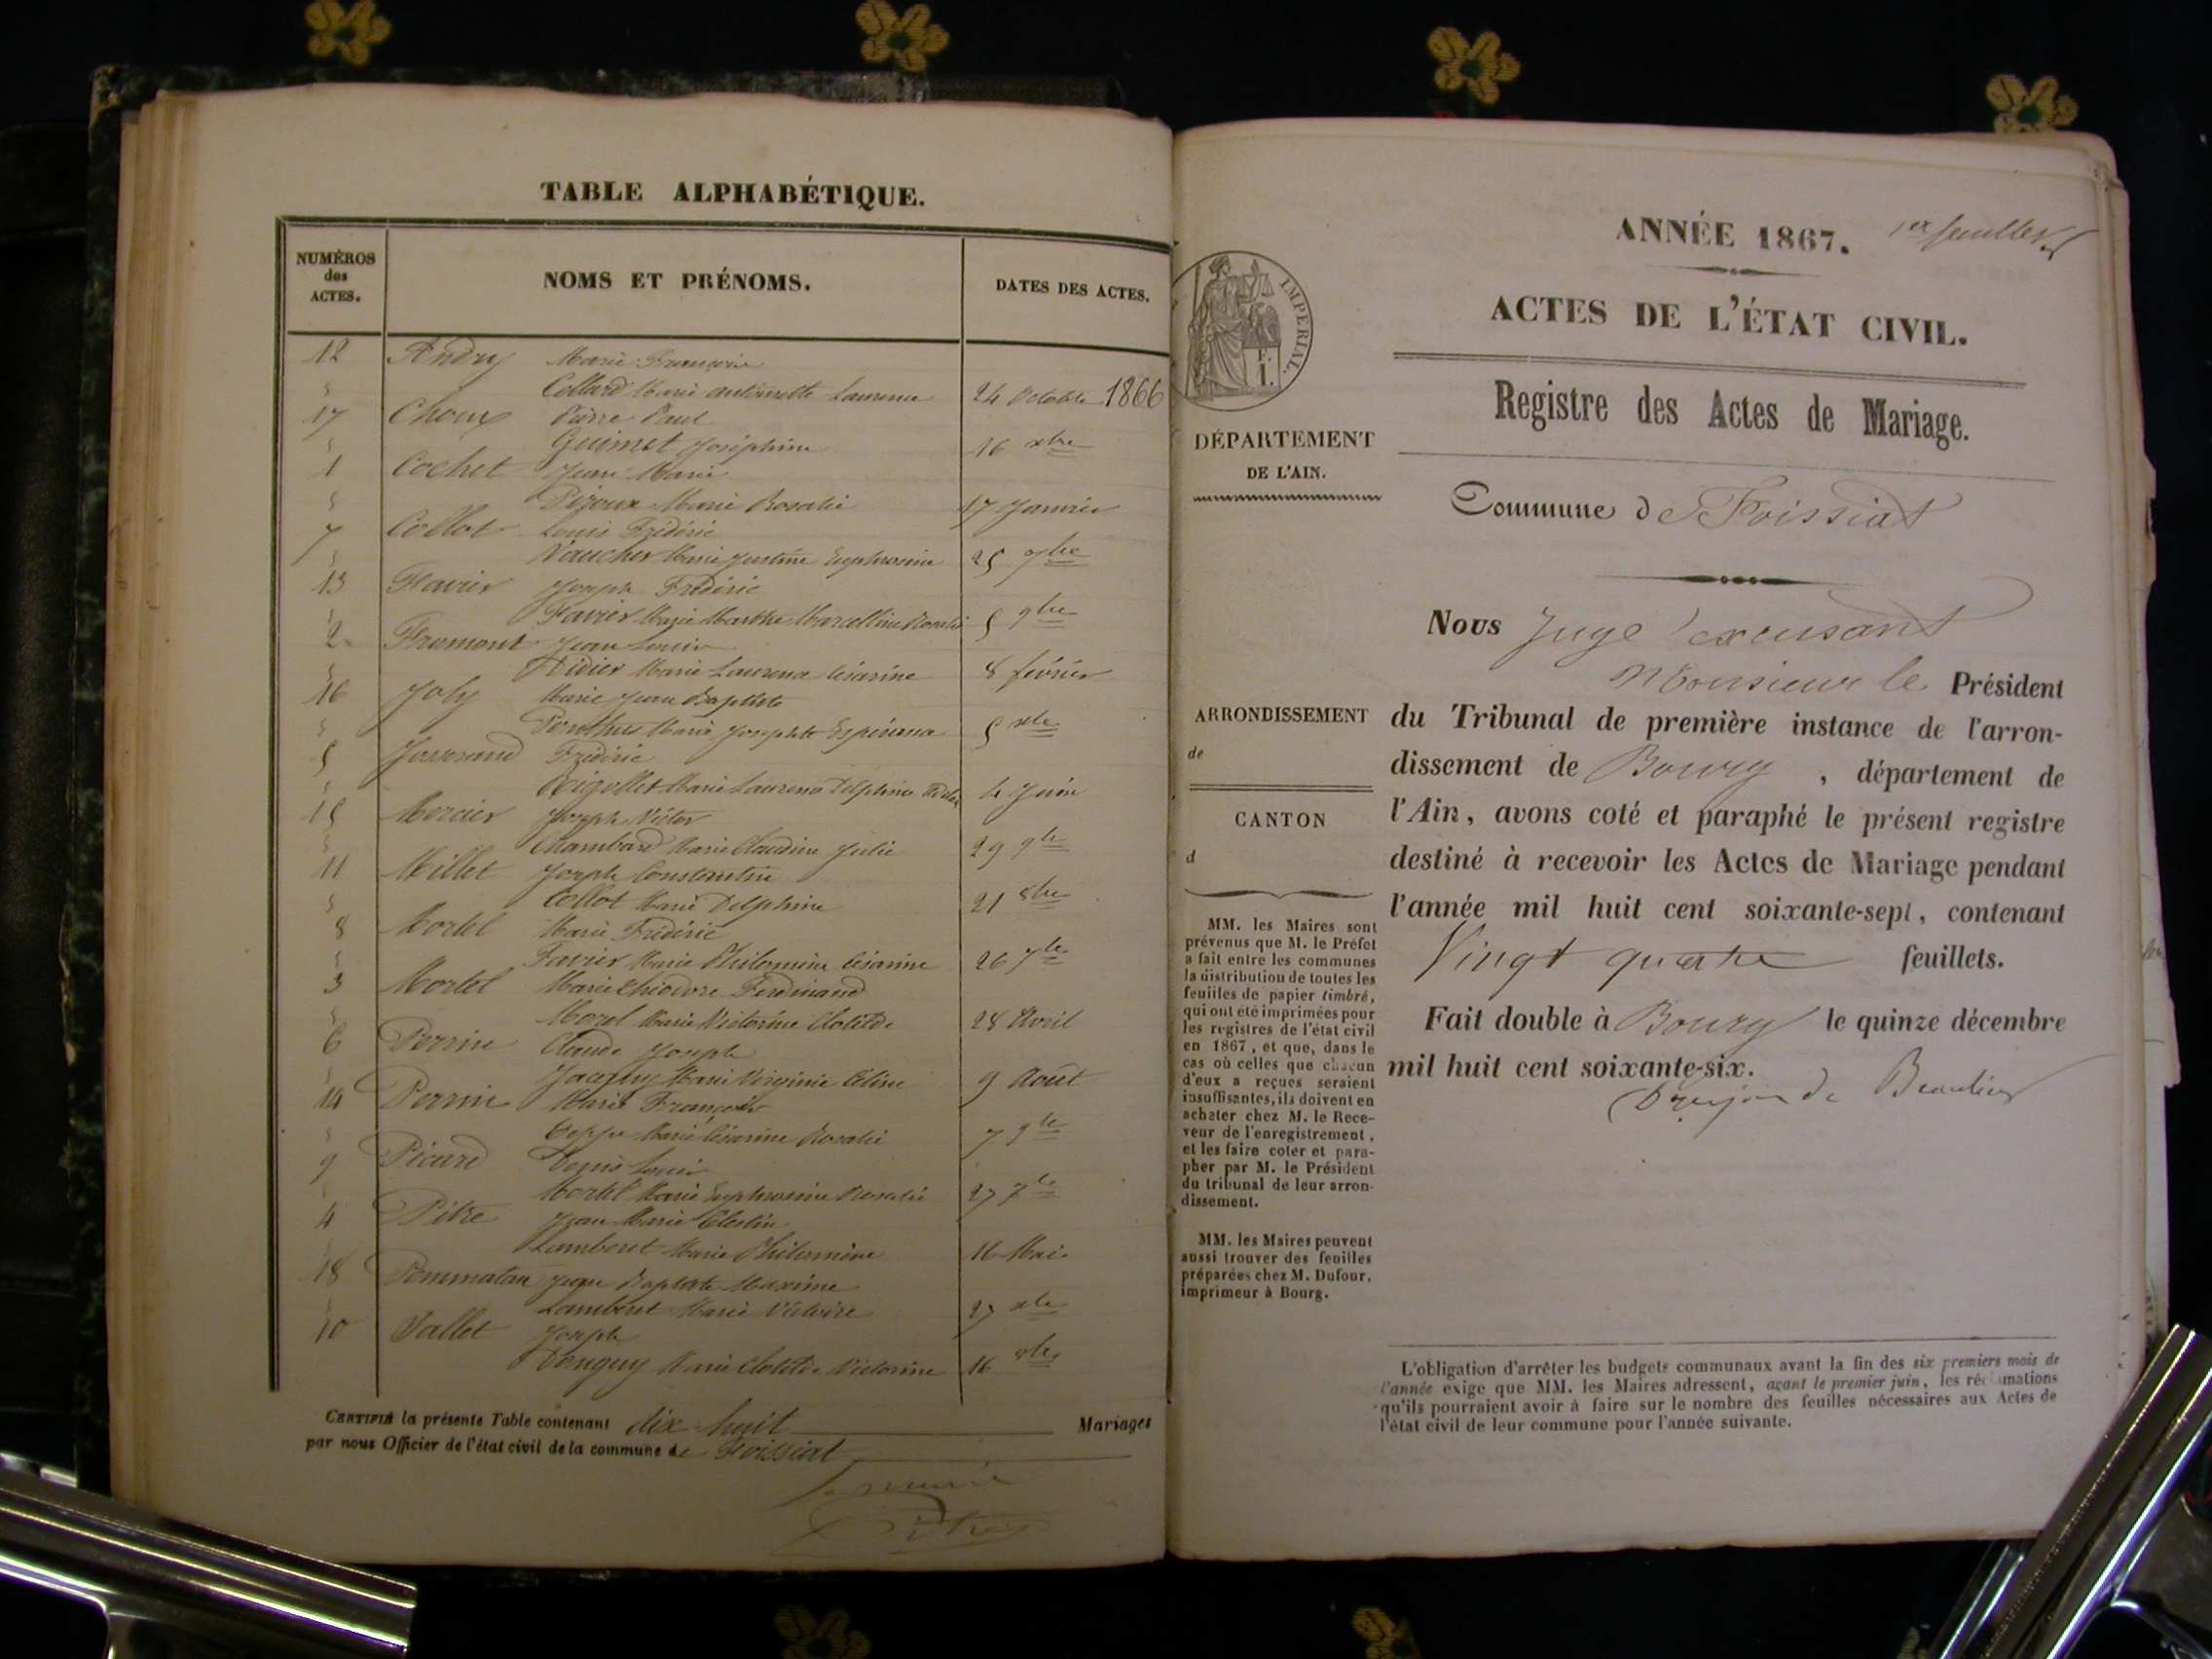 TABLE ALPHABÉTIQUE.
NUMÉROS des ACTES.
NOMS ET PRÉNOMS.
DATES DES ACTES.
12 Andry Marie François
Collard Marie antoinette Laurence 24 Octobre 1866
17 Choux Pierre Paul
Guimet Joséphine 16 xbre
1 Cochet Jean Marie
Marie Rosalie 17 Janvier
7 Collot Louis Frédéric
Vaucher Marie Justine Euphrosine 25 7bre
13 Favier Joseph Frédéric
Favier Marie Marthe Marcelline Rosalie 5 9bre
2 Fremont Jean Louis
Didier Marie Laurence Césarine 8 février
16 Joly Marie Jean Baptiste
Ponthus Marie Josephte 5 xbre
5 Josserand Frédéric
Marie Laurence Delphine 4 Juin
15 Mercier Joseph Victor
Chambard Marie Claudine Julie 29 9bre
11 Millet Joseph Constantin
Collot Marie Delphine 21 8bre
8 Mortel Marie Frédéric
Favier Marie Philomène Césarine 26 7bre
3 Mortel Marie Théodore Ferdinand
Morel Marie Victorine Clotilde 28 Avril
6 Perrin Claude Joseph
Marie Virginie Céline 9 Août
14 Perrin Marie François
Marie Césarine Rosalie 7 9bre
9 Picard Denis Louis
Mortel Marie Euphrosine Rosalie 27 7bre
4 Pitre Jean Marie Célestin
Lamberet Marie Philomène 16 Mai
18 Pommatau Jean Baptiste Maxime
Lamberet Marie Victoire 27 xbre
10 Sallet Joseph
Marie Clotilde Victorine 16 8bre
CERTIFIÉ la présente Table contenant dix huit Mariages
par nous Officier de l'état civil de la commune de Foissiat
ANNÉE 1867. 1er feuillet
ACTES DE L'ÉTAT CIVIL.
IMPÉRIAL.
Registre des Actes de Mariage.
DÉPARTEMENT
DE L'AIN.
Commune de Foissiat
Nous Juge excusant
Monsieur le Président
ARRONDISSEMENT
de
CANTON
d
du Tribunal de première instance de l'arron-
dissement de Bourg, département de
l'Ain, avons coté et paraphé le présent registre
destiné à recevoir les Actes de Mariage pendant
l'année mil huit cent soixante-sept, contenant
Vingt quatre feuillets.
Fait double à Bourg le quinze décembre
mil huit cent soixante-six.
de Beaulieu
MM. les Maires sont
prévenus que M. le Préfet
a fait entre les communes
la distribution de toutes les
feuilles de papier timbré,
qui ont été imprimées pour
les registres de l'état civil
en 1867, et que, dans le
cas où celles que chacun
d'eux a reçues seraient
insuffisantes, ils doivent en
acheter chez M. le Rece-
veur de l'enregistrement,
et les faire coter et para-
pher par M. le Président
du tribunal de leur arron-
dissement.
MM. les Maires peuvent
aussi trouver des feuilles
préparées chez M. Dufour,
imprimeur à Bourg.
L'obligation d'arrêter les budgets communaux avant la fin des six premiers mois de
l'année exige que MM. les Maires adressent, avant le premier juin, les réclamations
qu'ils pourraient avoir à faire sur le nombre des feuilles nécessaires aux Actes de
l'état civil de leur commune pour l'année suivante.